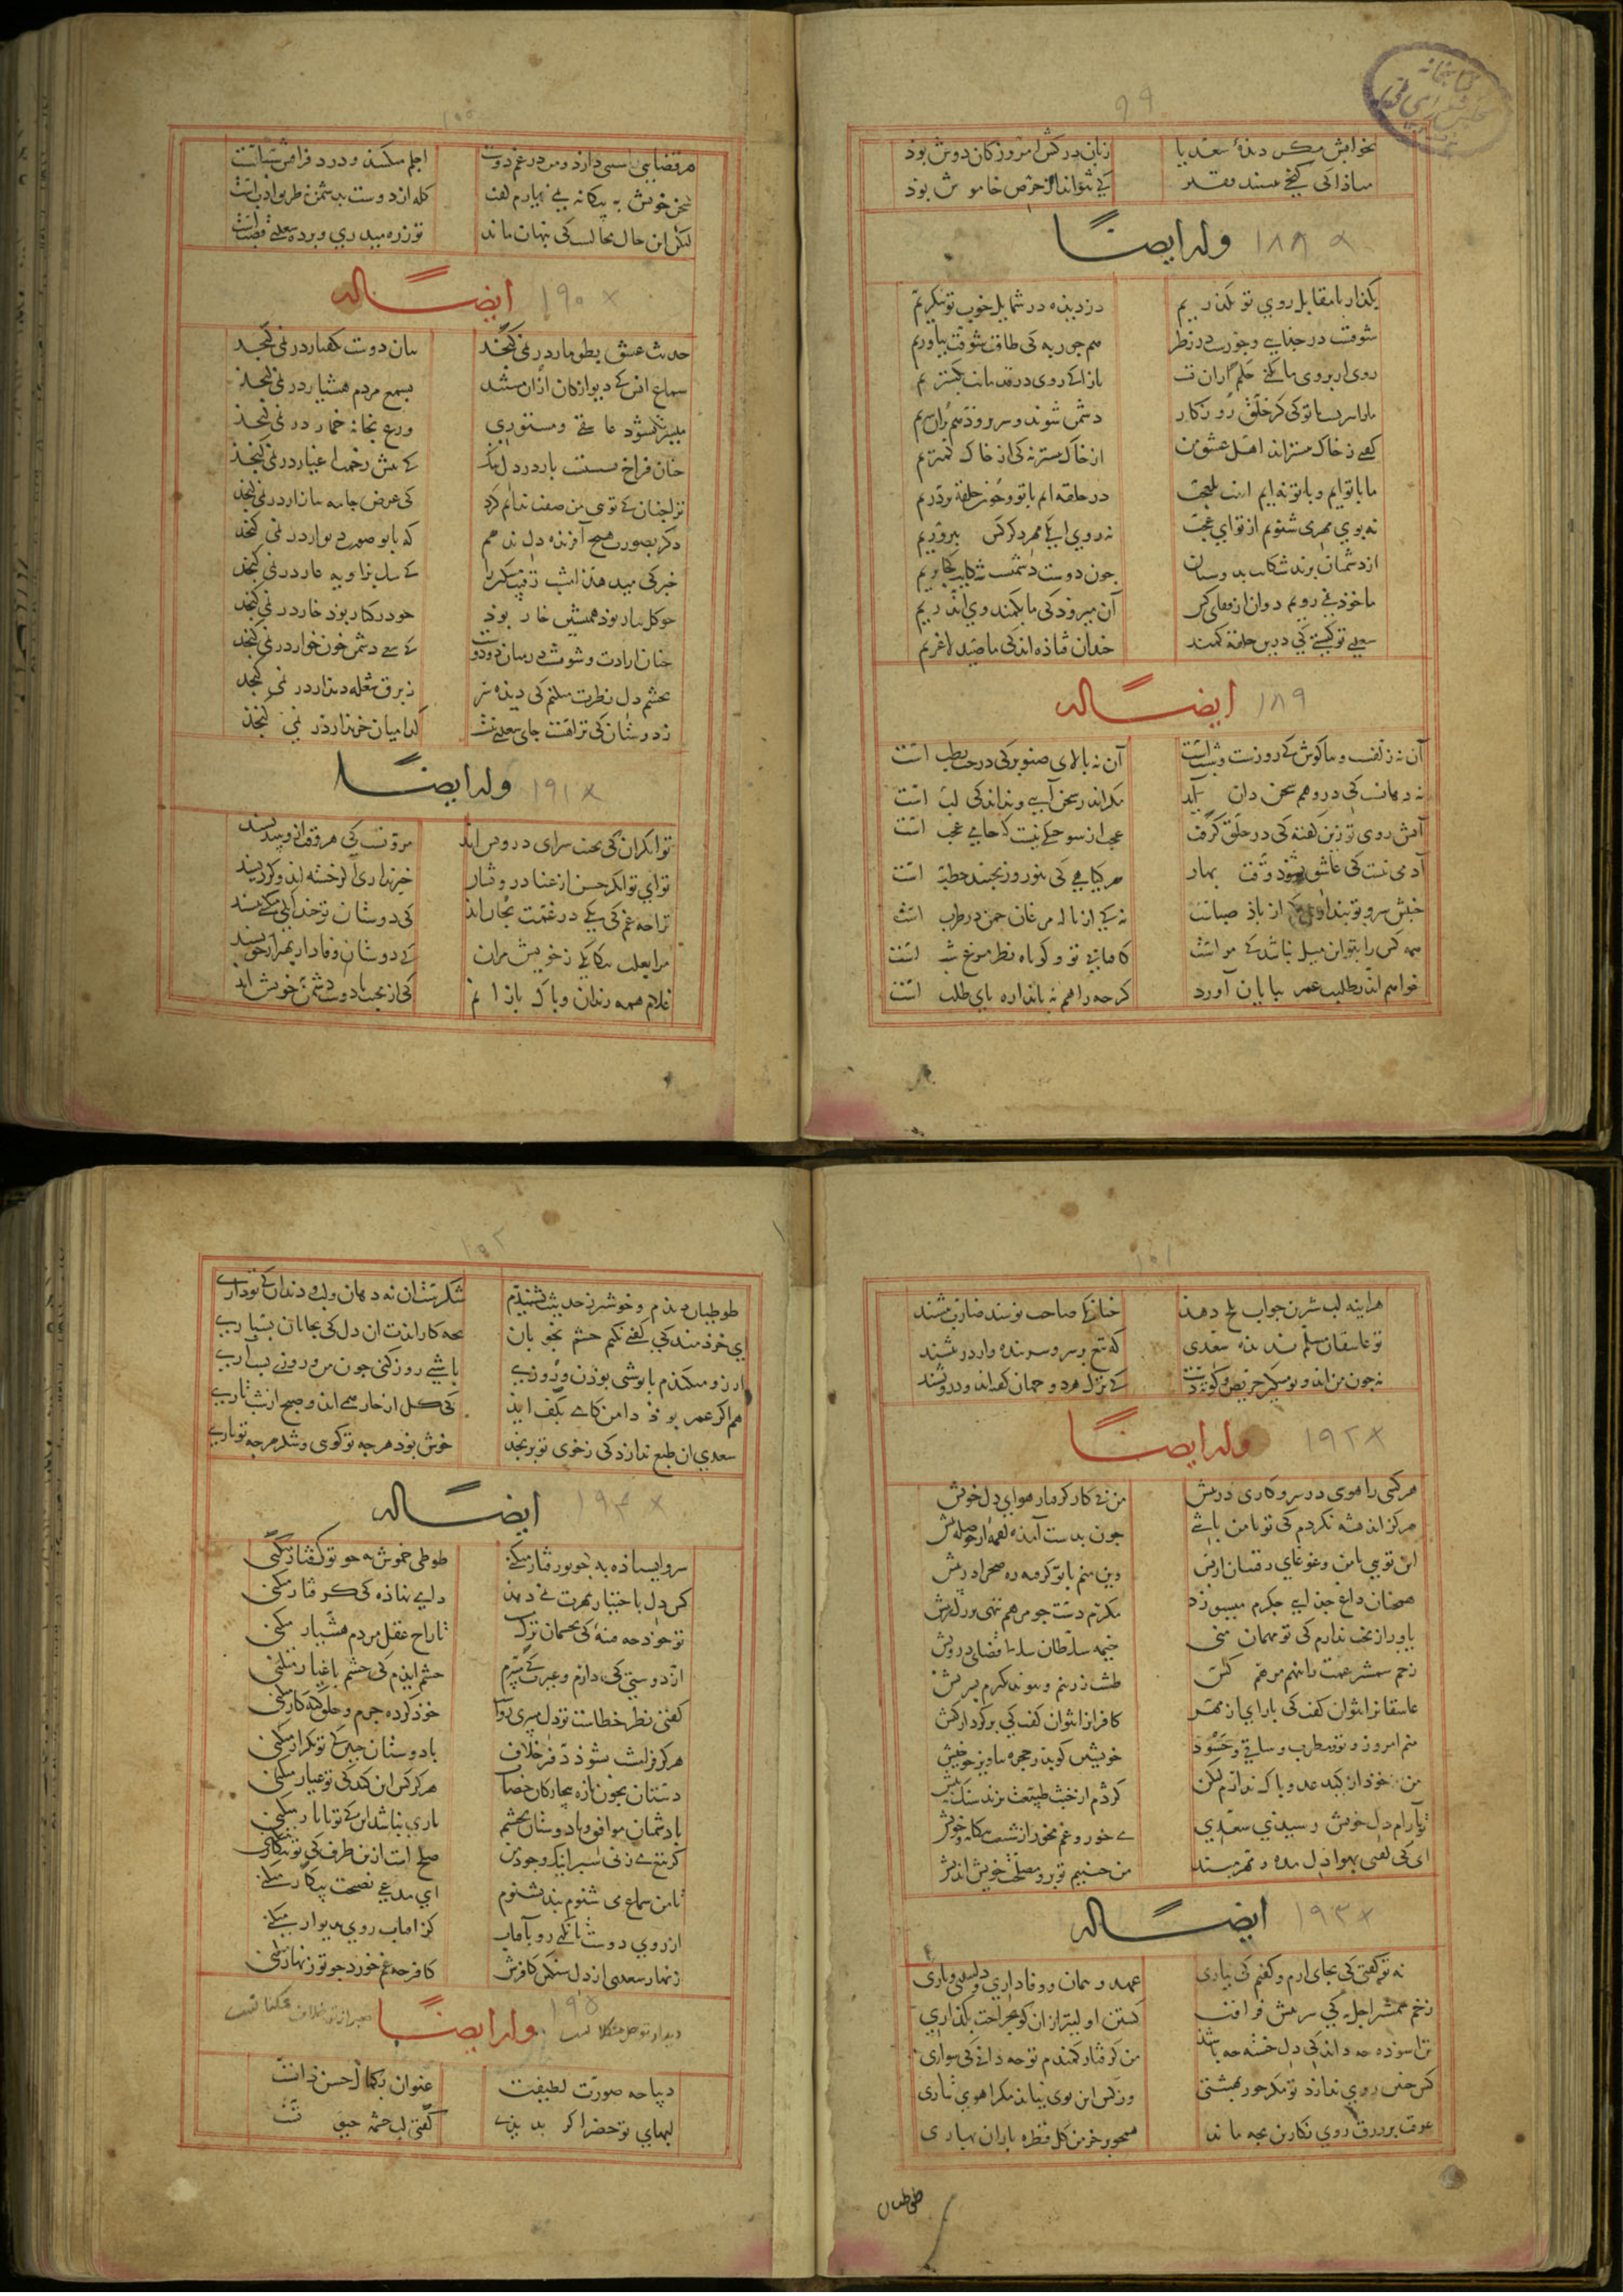 ۹۹
بخوابش مکر دیدهٔ سعدیا زبان درکش امروز کان دوش بود
مبادا کی کنجی بیند فقیر کی نتواند از حرص خاموش بود
وله ایضاً ۱۸۸
بکذار تا مقابل روی تو بکذریم دزدیده در شمایل خوب تو بنکریم
شوقست در جدایی و جورست در نظر هم جور به کی طاقت شوقت نیاوریم
روی ار بروی ما نکنی حکم از آن تست بازا کی روی در قدمانت بکستریم
ما را سریست با تو کی کر خلق روزکار دشمن شوند و سر برود هم بران سریم
کفتی ز خاک بیشترند اهل عشق من از خاک بیشتر نه کی از خاک کمتریم
ما با توایم و با تو نه‌ایم اینت بلعجب در حلقه‌ایم با تو و چون حلقه بر دریم
نه بوی مهر می شنویم از تو ای عجب نه روی آنکه مهر دکر کس بپروریم
از دشمنان برند شکایت بدوستان چون دوست دشمنست شکایت کجا بریم
ما خود نمی رویم دوان از قفای کس آن می‌برد کی ما بکمند وی اندریم
سعدی تو کیستی کی درین حلقه کمند چندان فتاده‌اند کی ما صید لاغریم
ایضاً له ۱۸۹
آن نه زلفست و بناکوش کی روزست و شبست آن نه بالای صنوبر کی درخت رطب است
نه دهانست کی در وهم سخن دان آید مکر اندر سخن آیی و بداند کی لب است
آتش روی تو زین کفته کی در خلق کرفت عجب از سوختکی نیست کی خامی عجب است
آدمی نیست کی عاشق نشود وقت بهار هر کیاهی کی بنوروز نجنبد حطب است
جنبش سرو تو پنداری کز باد صباست نه کی از ناله مرغان چمن در طرب است
همه کس را بتو این میل نباشد کی مراست کافتابی تو و کوتاه نظر مرغ شب است
خواهم اندر طلبت عمر بپایان آورد کرچه راهم نه باندازه پای طلب است
۱۰۰
هر قضایی سببی دارد و من در غم دوست اجلم میکشد و درد فراقش سببست
سخن خویش به بیکانه نمی‌یارم کفت کله از دوست بدشمن نه طریق ادبست
لیکن این حال محالست کی پنهان ماند تو زره میدری و پرده سعدی قصبست
ایضاً له ۱۹۰
حدیث عشق بطومار در نمی‌کنجد بیان دوست بکفتار در نمی‌کنجد
سماع انس کی دیوانکان ازان مستند بسمع مردم هشیار در نمی‌کنجد
میسرت نشود عاشقی و مستوری ورع بخانهٔ خمار در نمی‌کنجد
چنان فراخ نشستست یار در دل تنک کی بیش زحمت اغیار در نمی‌کنجد
ترا چنان کی تویی من صفت ندانم کرد کی عرض جامه ببازار در نمی‌کنجد
دکر بصورت هیچ آفریده دل ندهم که با تو صورت دیوار در نمی‌کنجد
خبر کی میدهد امشب رقیب مسکین را کی سک بزاویه غار در نمی‌کنجد
چو کل ببار بود همنشین خار بود چو در کنار بود خار در نمی‌کنجد
چنان ارادت و شوقست در میان دو دوست کی سعی دشمن خون خوار در نمی‌کنجد
بچشم دل نظرت میکنم کی دیده سر ز برق شعله دیدار در نمی‌کنجد
ز دوستان کی تراهست جای سعدی نیست کدا میان خریدار در نمی‌کنجد
وله ایضاً ۱۹۱
توانکران کی بجنب سرای درویش‌اند مروتست کی هر وقت ازو بیندیشند
تو ای توانکر حسن از غنای درویشان خبر نداری اکر خسته‌اند و کر ریشند
ترا چه غم کی یکی در غمت بجان آید کی دوستان تو چندانکه میکشی بیشند
مرا بعلت بیکانکی ز خویش مران کی دوستان وفادار بهتر از خویشند
غلام همت رندان و پاک بازانم کی از محبت با دوست دشمن خویش‌اند
۱۰۱
هراینه لب شیرین جواب تلخ دهد چنانکه صاحب نوشند ضارب نیشند
تو عاشقان مسلم ندیده سعدی که تیغ بر سر و سر بنده وار در پیشند
نه چون من‌اند و تو مسکین حریص کوته دست کی ترک هر دو جهان کفته‌اند و درویشند
وله ایضاً ۱۹۲
هر کسی را هوسی در سر و کاری در پیش من بی‌کار کرفتار هوای دل خویش
هرکز اندیشه نکردم کی تو با من باشی چون بدست آمدی ای لقمه از حوصله بیش
این تویی با من و غوغای رقیبان از پس وین منم با تو کرفته ره صحرا در پیش
همچنان داغ جدایی جکرم میسوزد مکرم دست چو مرهم بنهی بر دل ریش
باور از بخت ندارم کی تو مهمان منی خیمه سلطان و آنکاه فضای درویش
زخم شمشیر غمت را ننهم مرهم کس طشت زرینم و پیوند نکیرم بسریش
عاشقانرا نتوان کفت کی بازآی از مهر کافرانرا نتوان کفت کی برکرد از کیش
منم امروز و تو و مطرب و ساقی و حسود خویشتن کو بدر حجره بیاویز چو خیش
من خود از کید عدو باک ندارم لیکن کژدم از خبث طبیعت بزند سنک بنیش
تو بآرام دل خویش رسیدی سعدی می خور و غم مخور از شنعت بیکانه و خویش
ای کی کفتی بهوا دل منه و مهر مبند من چنینم تو برو مصلحت خویش اندیش
ایضاً له ۱۹۳
نه تو کفتی کی بجای آرم و کفتم کی نیاری عهد و پیمان و وفاداری و دلبندی و یاری
زخم شمشیر اجل به کی سر نیش فراقت کشتن اولیتر ازان کم بجراحت بکذاری
تن آسوده چه داند کی دل خسته چه باشد من کرفتار کمندم تو چه دانی کی سواری
کس چنین روی ندارد تو مکر حور بهشتی وز کس این بوی نیاید مکر آهوی تتاری
عرقت بر ورق روی نکارین بچه ماند همچو بر خرمن کل قطره باران بهاری
طوطیان
۱۰۲
طوطیان دیدم و خوشتر ز حدیثت نشنیدم شکرست آن نه دهان و لب و دندان کی تو داری
ای خردمند کی کفتی نکنم چشم بخوبان بچه کار آیدت آن دل کی بجانان نسپاری
آرزو میکندم با تو شبی بودن و روزی یا شبی روز کنی چون من و روزی بشب آری
هم اکر عمر بود دامن کامی بکف آید کی کل از خار همی آید و صبح از شب تاری
سعدی آن طبع ندارد کی ز خوی تو برنجد خوش بود هرچه تو کویی و شکر هرچه تو باری
ایضاً له ۱۹۴
سرو ایستاده به چو تو رفتار میکنی طوطی خموش به چو تو کفتار میکنی
کس دل باختیار بمهرت نمی‌دهد دامی نهاده کی کرفتار میکنی
تو خود چه فتنهٔ کی بچشمان ترک مست تاراج عقل مردم هشیار میکنی
از دوستی کی دارم و غیرت کی می‌برم خشم آیدم کی چشم باغیار میکنی
کفتی نظر خطاست تو دل میبری رواست خود کرده جرم و خلق کنه‌کار میکنی
هرکز فرامشت نشود دفتر خلاف با دوستان چنین کی تو تکرار میکنی
دستان بخون تازه بیچارکان خضاب هرکز کس این کند کی تو عیار میکنی
با دشمنان موافق و با دوستان بخشم یاری نباشد این کی تو با یار میکنی
کر تیغ می‌زنی سپر اینک وجود من صلح است ازین طرف کی تو پیکار میکنی
تا من سماع می‌شنوم پند نشنوم ای مدعی نصیحت بیکار میکنی
از روی دوست تا نکنی رو بآفتاب کز آفتاب روی بدیوار میکنی
زنهار سعدی از دل سنکین کافرش کافر چه غم خورد چو تو زنهار میکنی
وله ایضاً ۱۹۵
دیباچه صورت لطیفت عنوان کمال حسن ذاتت
لبهای تو خضر اکر بدیدی کفتی لب چشمه حیوتست